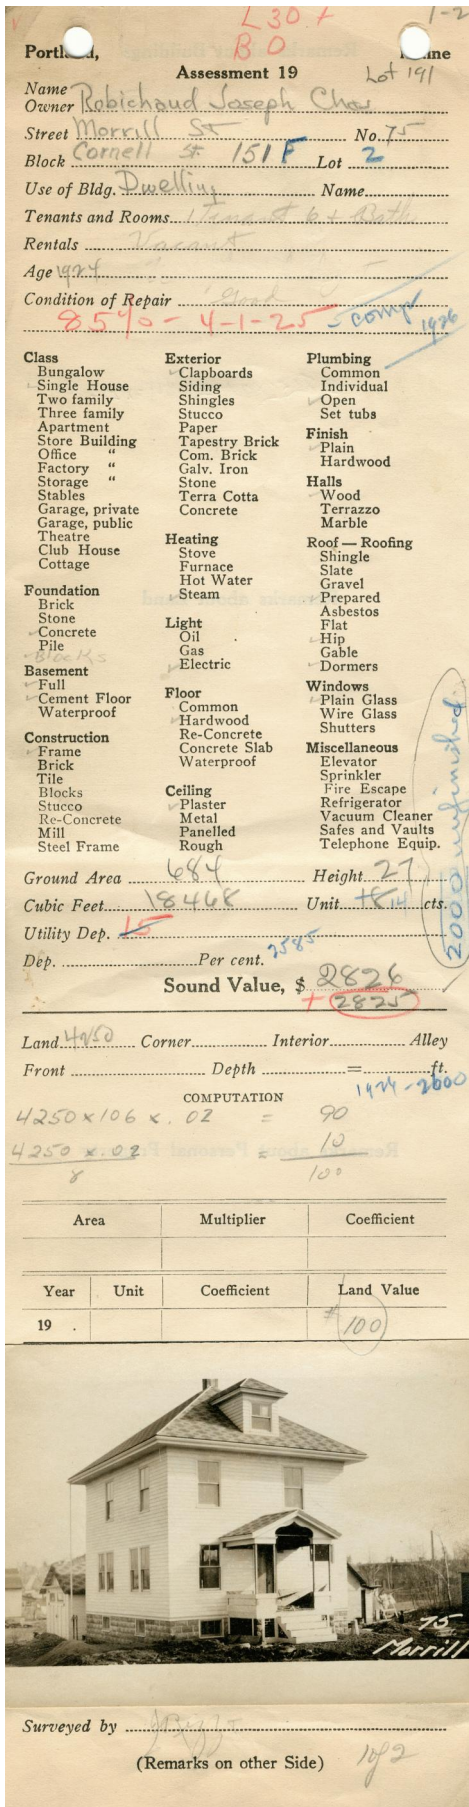 L 30 +
1-2
B 0
Portland, Maine
Assessment 19
Lot 191
Name
Owner Robichaud Joseph Chas
Street Morrill St No. 75
Block Cornell St. 151 F Lot 2
Use of Bldg. Dwelling Name
Tenants and Rooms 1 Tenant 6 + Bath
Rentals Vacant
Age 1924
Condition of Repair Good
85% - 4-1-25 - comp 1926
Class
Bungalow
Single House
Two family
Three family
Apartment
Store Building
Office "
Factory "
Storage "
Stables
Garage, private
Garage, public
Theatre
Club House
Cottage
Foundation
Brick
Stone
Concrete
Pile
Blocks
Basement
Full
Cement Floor
Waterproof
Construction
Frame
Brick
Tile
Blocks
Stucco
Re-Concrete
Mill
Steel Frame
Exterior
Clapboards
Siding
Shingles
Stucco
Paper
Tapestry Brick
Com. Brick
Galv. Iron
Stone
Terra Cotta
Concrete
Heating
Stove
Furnace
Hot Water
Steam
Light
Oil
Gas
Electric
Floor
Common
Hardwood
Re-Concrete
Concrete Slab
Waterproof
Ceiling
Plaster
Metal
Panelled
Rough
Plumbing
Common
Individual
Open
Set tubs
Finish
Plain
Hardwood
Halls
Wood
Terrazzo
Marble
Roof — Roofing
Shingle
Slate
Gravel
Prepared
Asbestos
Flat
Hip
Gable
Dormers
Windows
Plain Glass
Wire Glass
Shutters
Miscellaneous
Elevator
Sprinkler
Fire Escape
Refrigerator
Vacuum Cleaner
Safes and Vaults
Telephone Equip.
2000 unfinished
Ground Area 684 Height 27
Cubic Feet 18468 Unit 14 cts.
Utility Dep. 15
Dep. Per cent. 2585
Sound Value, $ 2826
+ 2825
Land 4250 Corner Interior Alley
Front Depth = ft.
1924-2000
COMPUTATION
4250 x 106 x .02 = 90
4250 x .02 = 10
8 100
Area Multiplier Coefficient
Year Unit Coefficient Land Value
19 . $100
75
Morrill
Surveyed by
(Remarks on other Side)
1 of 2